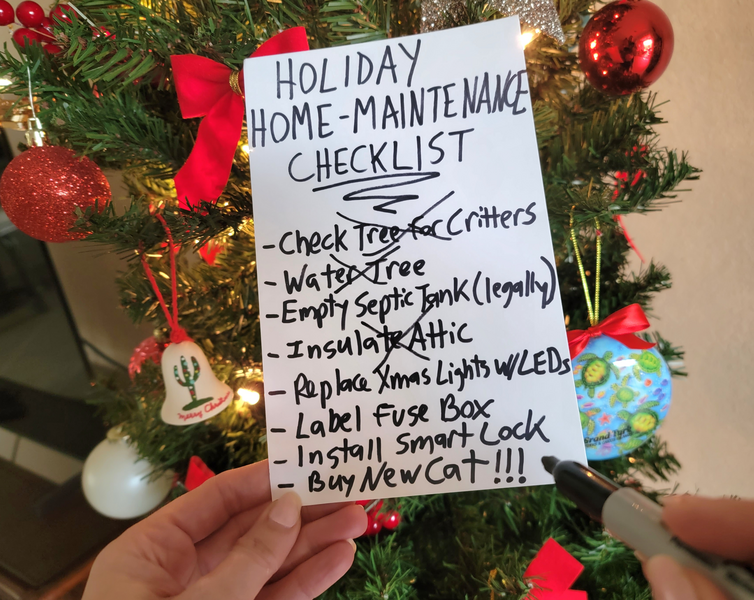 HOLIDAY
HOME-MAINTENANCE
CHECKLIST
- Check Tree for Critters
- Water Tree
- Empty Septic Tank (legally)
- Insulate Attic
- Replace Xmas Lights w/LEDs
- Label Fuse Box
- Install Smart Lock
- Buy New Cat!!!
Merry Christmas
Grand Turk